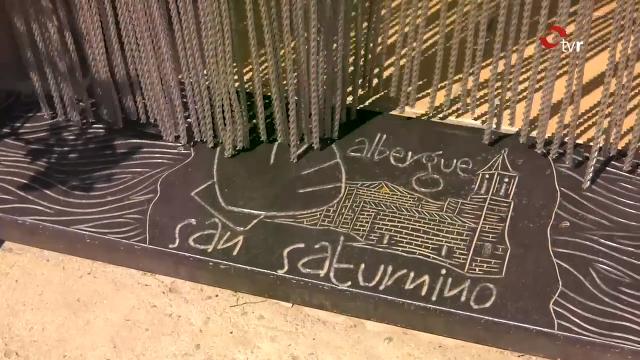 tvr
albergue
san saturnino